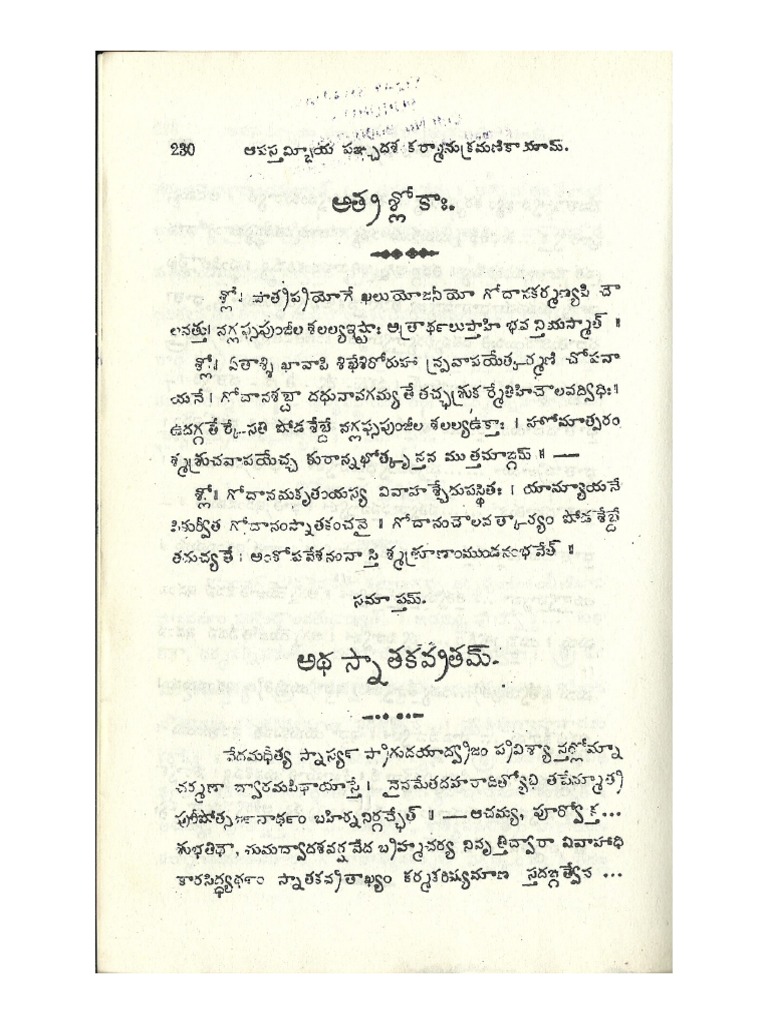 230 ఆపస్తమ్బీయ పఞ్చదశ కర్మానుక్రమణికాయామ్.
అత్ర శ్లోకాః.
శ్లో॥ పాత్రప్రయోగే ఖలు యోజనీయో గోదానకర్మణ్యపి చౌ
లనత్తు। నగ్లప్సపుంజీల శలల్యఇష్టాః అత్రార్థలుప్తాహి భవన్తియస్మాత్ ॥
శ్లో॥ ఏతాశ్శిఖావాపి శిఖేశిరోరుహా న్ప్రవాపయేత్కర్మణి చోపనా
యనే। గోదానశబ్దా దధునావగమ్యతే తచ్ఛ్మశ్రుకర్మేతిహిచౌలవద్విధిః।
ఉదగ్గతేర్కే సతి షోడశేబ్దే నగ్లప్సపుంజీల శలల్యఉక్తాః। హోమాత్పరం
శ్మశ్రుచవాపయేచ్చ కురాన్నఖోత్కృన్తన ముత్తమాఙ్గమ్ ॥ —
శ్లో॥ గోదానమకృతంయస్య వివాహశ్చేదుపస్థితః। యామ్యాయనే
పికుర్వీత గోదానంస్నాతకంచవై॥ గోదానంచౌలవత్కార్యం షోడశేబ్దే
తదుచ్యతే। అంశోపవేశనంనాస్తి శ్మశ్రూణాంముండనంభవేత్ ॥
సమాప్తమ్.
అథ స్నాతకవ్రతమ్.
వేదమధీత్య స్నాస్యన్ ప్రాగుదయాద్వ్రజం ప్రవిశ్యాన్తర్లోమ్నా
చర్మణా ద్వారమపిధాయాస్తే। నైనమేతదహరాదిత్యోభి తపేన్మూత్ర
పురీషోత్సర్జనార్థం బహిర్ననిర్గచ్ఛేత్ ॥ — ఆచమ్య, పూర్వోక్త...
శుభతిథౌ, మమద్వాదశవర్షవేద బ్రహ్మచర్య నివృత్తిద్వారా వివాహాధి
కారసిద్ధ్యర్థం స్నాతకవ్రతాఖ్యం కర్మకరిష్యమాణ స్తదఙ్గత్వేన ...